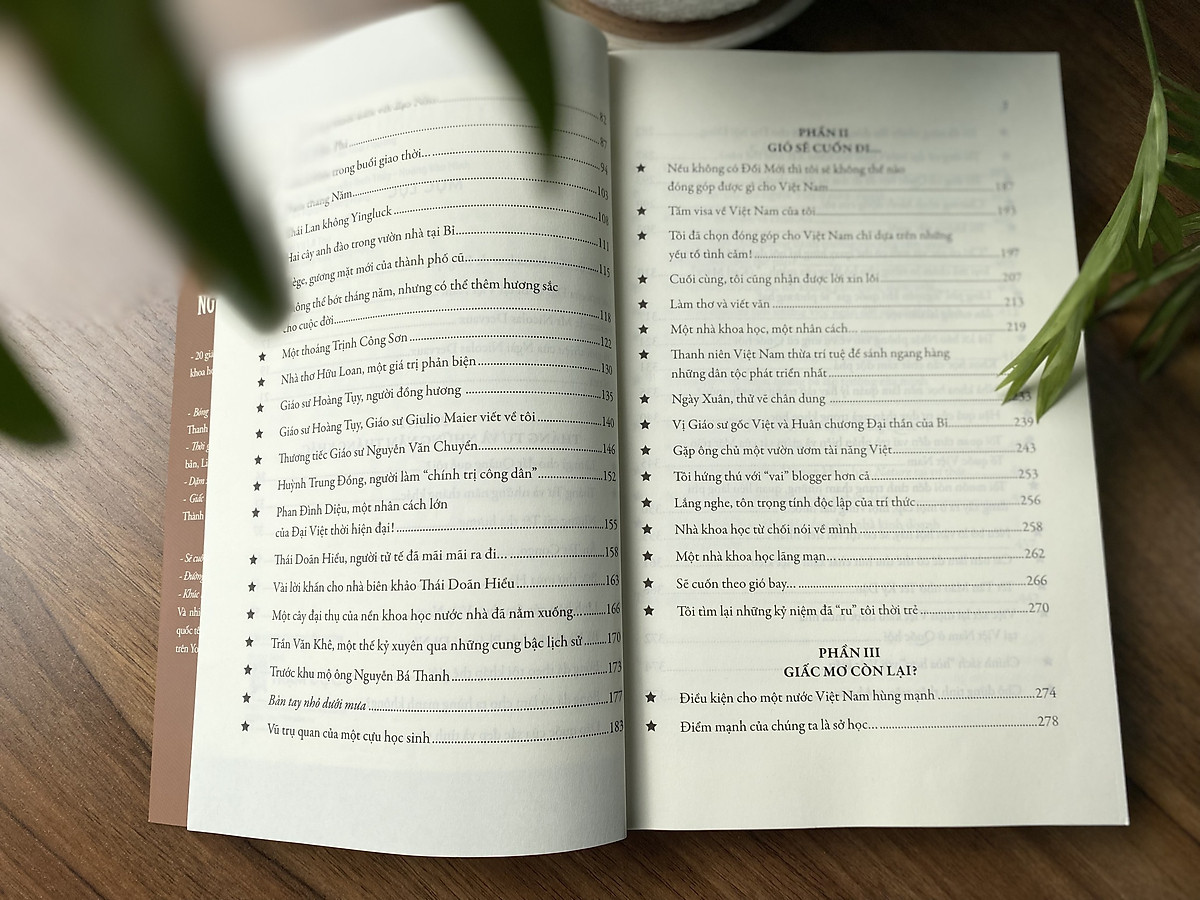 82
87
trong buổi giao thời... 94
tháng Năm 103
Lan không Yingluck 108
Hai cây anh đào trong vườn nhà tại Bỉ 111
gương mặt mới của thành phố cũ 115
thể bớt tháng năm, nhưng có thể thêm hương sắc
cho cuộc đời 118
★ Một thoáng Trịnh Công Sơn 122
★ Nhà thơ Hữu Loan, một giá trị phản biện 130
★ Giáo sư Hoàng Tụy, người đồng hương 135
★ Giáo sư Hoàng Tụy, Giáo sư Giulio Maier viết về tôi 140
★ Thương tiếc Giáo sư Nguyễn Văn Chuyển 146
★ Huỳnh Trung Đồng, người làm “chính trị công dân” 152
★ Phan Đình Diệu, một nhân cách lớn
của Đại Việt thời hiện đại! 155
★ Thái Doãn Hiểu, người tử tế đã mãi mãi ra đi... 158
★ Vài lời khấn cho nhà biên khảo Thái Doãn Hiểu 163
★ Một cây đại thụ của nền khoa học nước nhà đã nằm xuống... 166
★ Trần Văn Khê, một thế kỷ xuyên qua những cung bậc lịch sử 170
★ Trước khu mộ ông Nguyễn Bá Thanh 173
★ Bàn tay nhỏ dưới mưa 177
★ Vũ trụ quan của một cựu học sinh 183
- 20
khoa
- Bóng
Thanh
- Thời
bản,
- Dặm
- Giấc
Thành
- Sẽ
- Đường
- Khúc
Và
quốc
trên
PHẦN II
GIÓ SẼ CUỐN ĐI...
★ Nếu không có Đổi Mới thì tôi sẽ không thể nào
đóng góp được gì cho Việt Nam 187
★ Tấm visa về Việt Nam của tôi 193
★ Tôi đã chọn đóng góp cho Việt Nam chỉ dựa trên những
yếu tố tình cảm! 197
★ Cuối cùng, tôi cũng nhận được lời xin lỗi 207
★ Làm thơ và viết văn 213
★ Một nhà khoa học, một nhân cách... 219
★ Thanh niên Việt Nam thừa trí tuệ để sánh ngang hàng
những dân tộc phát triển nhất
★ Ngày Xuân, thử vẽ chân dung 233
★ Vị Giáo sư gốc Việt và Huân chương Đại thần của Bỉ 239
★ Gặp ông chủ một vườn ươm tài năng Việt 243
★ Tôi hứng thú với “vai” blogger hơn cả 253
★ Lắng nghe, tôn trọng tính độc lập của trí thức 256
★ Nhà khoa học từ chối nói về mình 258
★ Một nhà khoa học lãng mạn... 262
★ Sẽ cuốn theo gió bay... 266
★ Tôi tìm lại những kỷ niệm đã “ru” tôi thời trẻ 270
PHẦN III
GIẤC MƠ CÒN LẠI?
★ Điều kiện cho một nước Việt Nam hùng mạnh 274
★ Điểm mạnh của chúng ta là sở học... 278